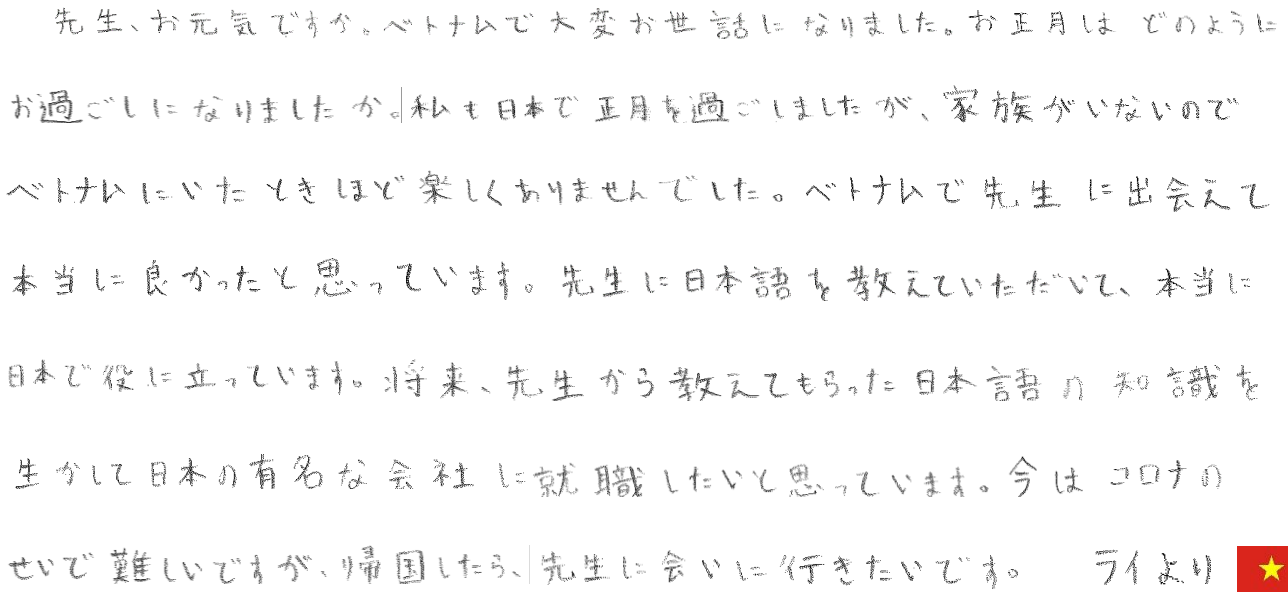 先生、お元気ですか。ベトナムで大変お世話になりました。お正月はどのように
お過ごしになりましたか。私も日本で正月を過ごしましたが、家族がいないので
ベトナムにいたときほど楽しくありませんでした。ベトナムで先生に出会えて
本当に良かったと思っています。先生に日本語を教えていただいて、本当に
日本で役に立っています。将来、先生から教えてもらった日本語の知識を
生かして日本の有名な会社に就職したいと思っています。今はコロナの
せいで難しいですが、帰国したら、先生に会いに行きたいです。 ライより